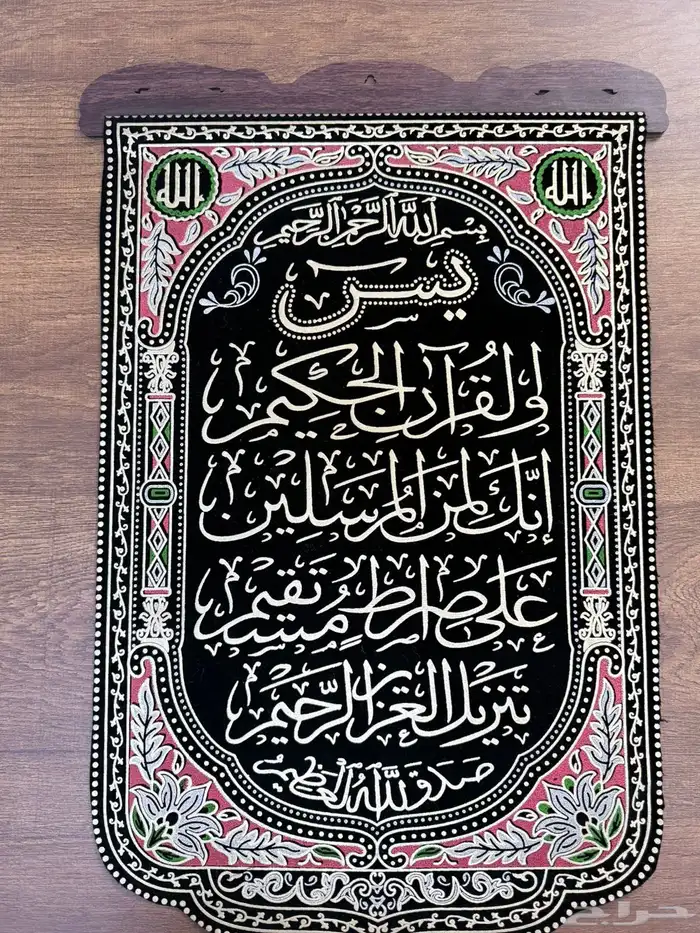 الله الله
بسم الله الرحمن الرحيم
يس
والقرآن الحكيم
إنك لمن المرسلين
على صراط مستقيم
تنزيل العزيز الرحيم
صدق الله العظيم
حراج